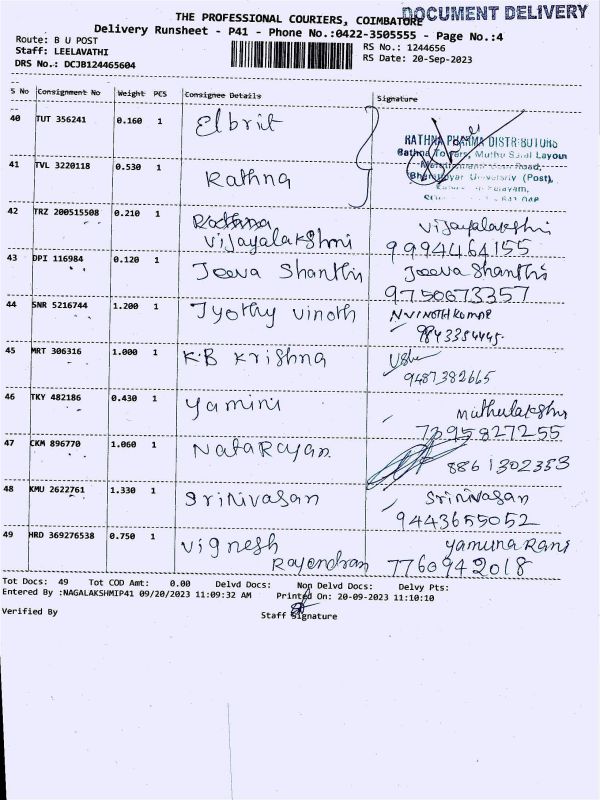 THE PROFESSIONAL COURIERS, COIMBATORE
DOCUMENT DELIVERY
Delivery Runsheet - P41 - Phone No.:0422-3505555 - Page No.:4
Route: B U POST
RS No.: 1244656
Staff: LEELAVATHI
RS Date: 20-Sep-2023
DRS No.: DCJB124465604
S No Consignment No Weight PCS Consignee Details Signature
40 TUT 356241 0.160 1 Elbrit
RATHNA PHARMA DISTRIBUTORS
Rathna Towers, Muthu Layout
Road,
Bharathiyar University (Post),
41 TVL 3220118 0.530 1 Rathna
42 TRZ 200515508 0.210 1 Vijayalakshmi Vijayalakshmi
9994464155
43 DPI 116984 0.120 1 Jeeva Shanthi Jeeva Shanthi
9750673357
44 SNR 5216744 1.200 1 Jyothy vinoth N.VINOTH KUMAR
9843354445.
45 MRT 306316 1.000 1 K.B Krishna Usha
9487382665
46 TKY 482186 0.430 1 Yamini Muthulakshmi
7395827255
47 CKM 896770 1.060 1 Natarayan 8861302353
48 KMU 2622761 1.330 1 Srinivasan Srinivasan
9443655052
49 HRD 369276538 0.750 1 Vignesh Rajendran Yamuna Rani
7760942018
Tot Docs: 49 Tot COD Amt: 0.00 Delvd Docs: Non Delvd Docs: Delvy Pts:
Entered By :NAGALAKSHMIP41 09/20/2023 11:09:32 AM Printed On: 20-09-2023 11:10:10
Verified By Staff Signature